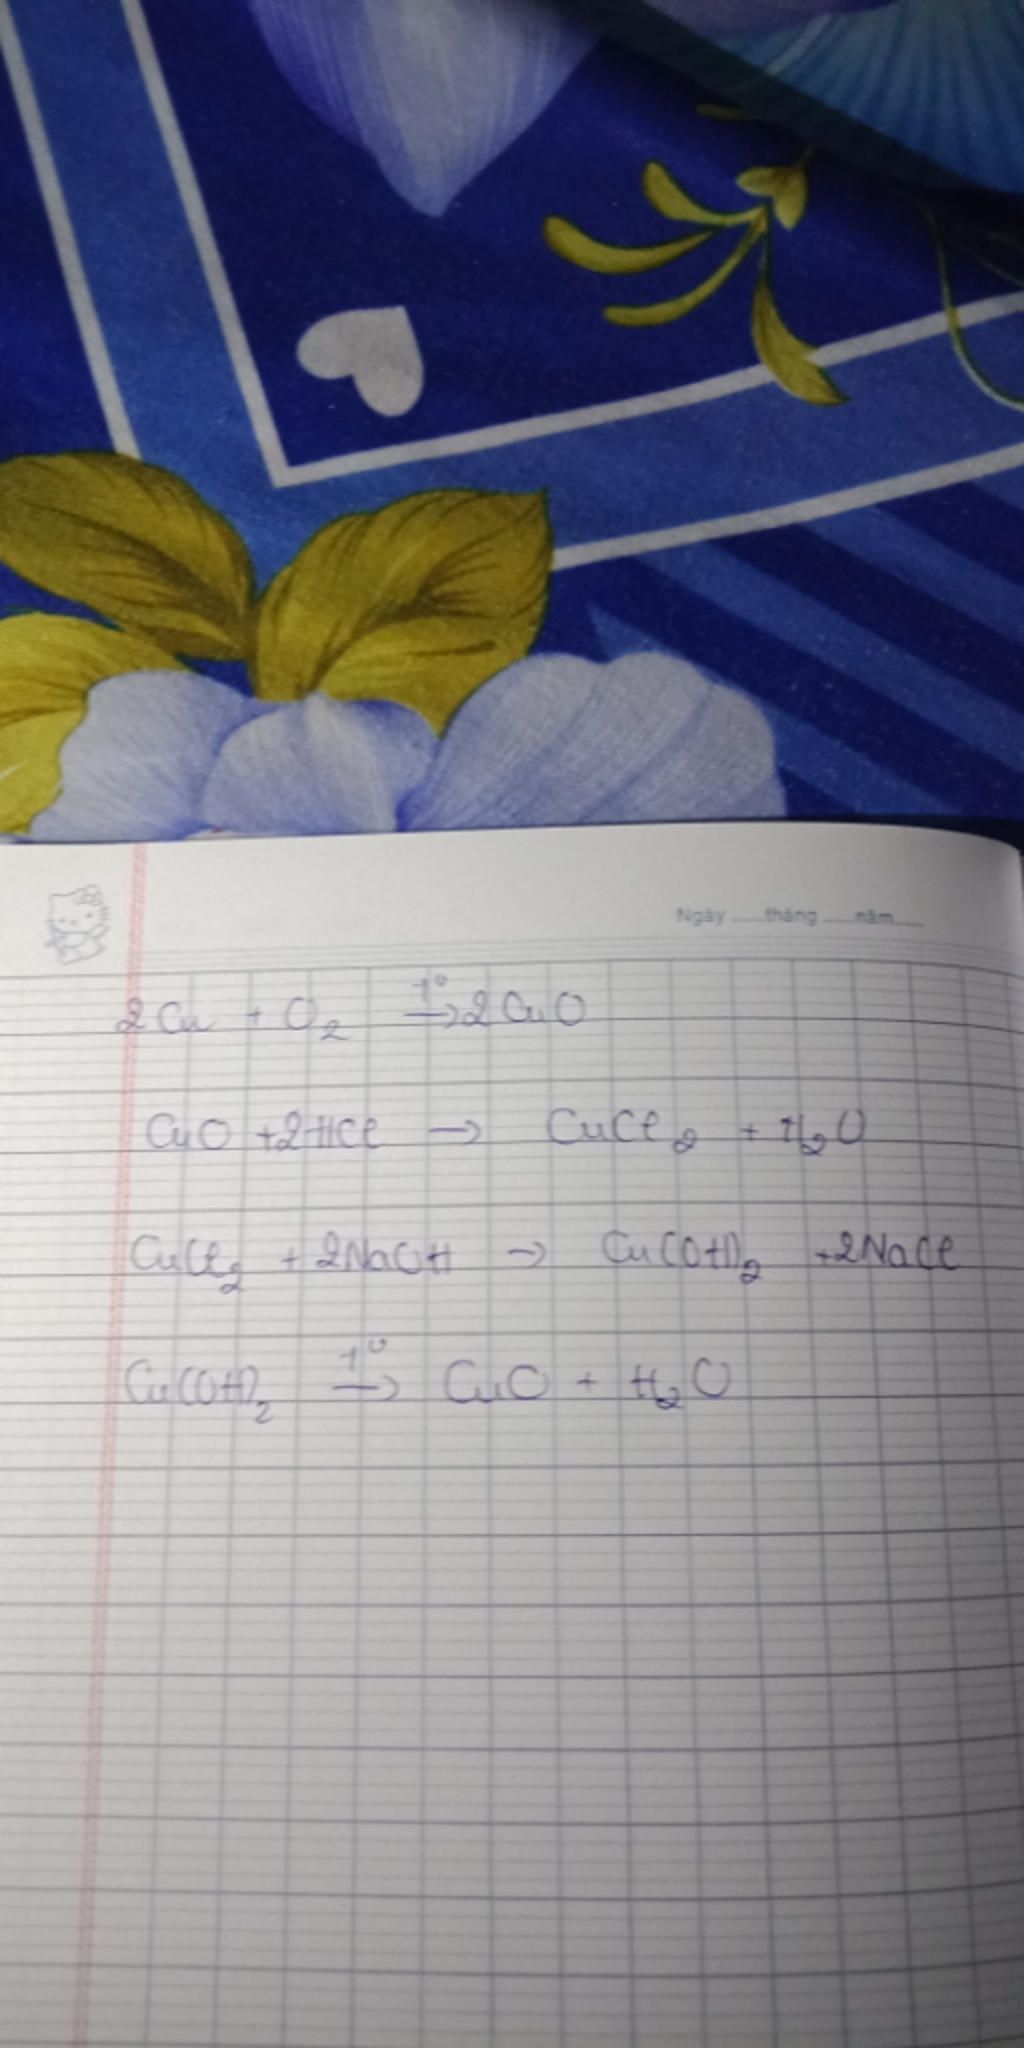 Ngày ......tháng ......năm......
2Cu + O₂ →t° 2CuO
CuO + 2HCl → CuCl₂ + H₂O
CuCl₂ + 2NaOH → Cu(OH)₂ + 2NaCl
Cu(OH)₂ →t° CuO + H₂O